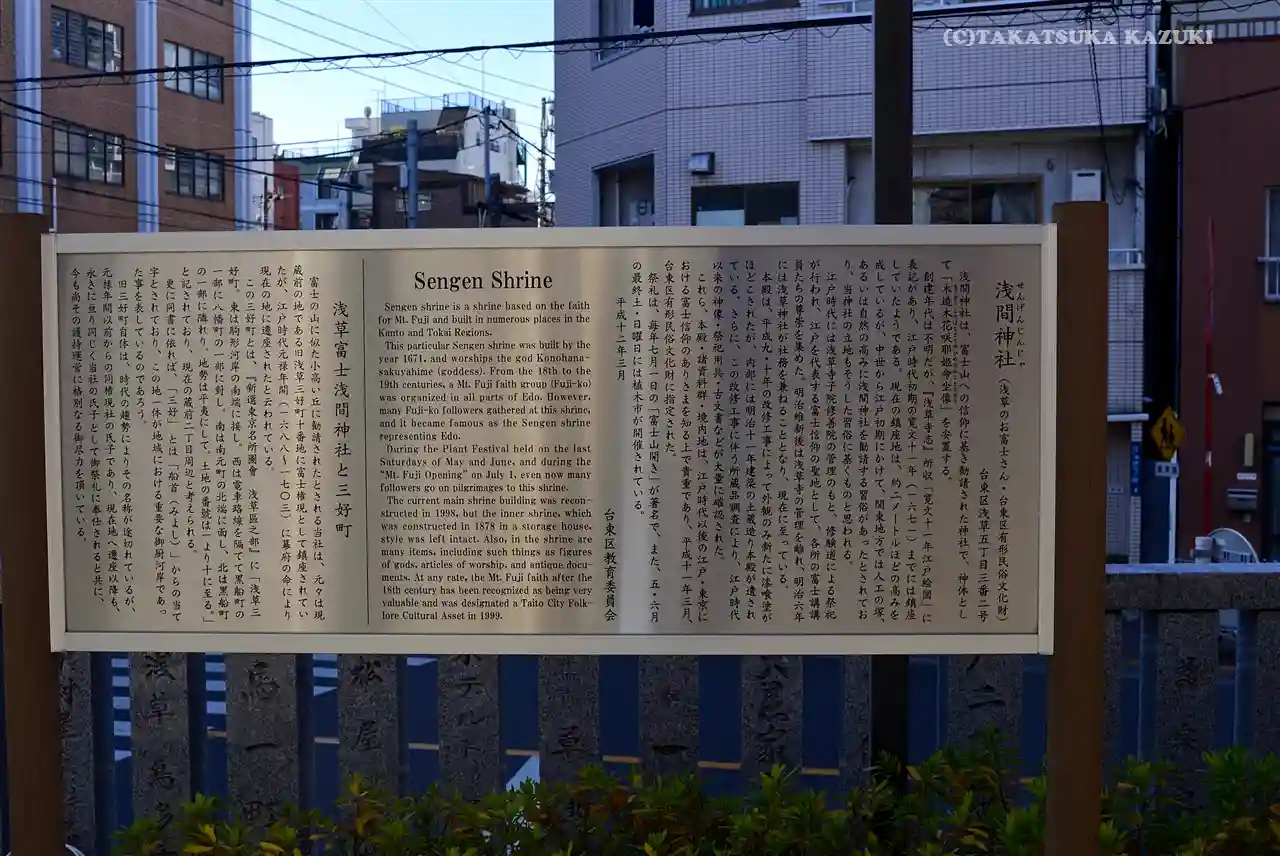 (C)TAKATSUKA KAZUKI
せんげんじんじゃ
浅間神社（浅草のお富士さん・台東区有形民俗文化財）
台東区浅草五丁目三番二号
浅間神社は、富士山への信仰に基き勧請された神社で、神体とし
て「木造木花咲耶姫命坐像」を安置する。
創建年代は不明だが、『浅草寺志』所収「寛文十一年江戸絵図」に
表記があり、江戸時代初期の寛文十一年（一六七一）までには鎮座
していたようである。現在の鎮座地は、約二メートルほどの高みを
成しているが、中世から江戸初期にかけて、関東地方では人工の塚、
あるいは自然の高みに浅間神社を勧請する習俗があったとされてお
り、当神社の立地もそうした習俗に基くものと思われる。
江戸時代には浅草寺子院修善院の管理のもと、修験道による祭祀
が行われ、江戸を代表する富士信仰の聖地として、各所の富士講講
員たちの尊崇を集めた。明治維新後は浅草寺の管理を離れ、明治六年
には浅草神社が社務を兼ねることとなり、現在に至っている。
本殿は、平成九・十年の改修工事によって外観のみ新たに漆喰塗が
ほどこされたが、内部には明治十一年建築の土蔵造り本殿が遺され
ている。さらに、この改修工事に伴う所蔵品調査により、江戸時代
以来の神像・祭祀用具・古文書などが大量に確認された。
これら、本殿・諸資料群・境内地は、江戸時代以後の江戸・東京に
おける富士信仰のありさまを知る上で貴重であり、平成十一年三月、
台東区有形民俗文化財に指定された。
祭礼は、毎年七月一日の「富士山開き」が著名で、また、五・六月
の最終土・日曜日には植木市が開催されている。
平成十二年三月
台東区教育委員会
Sengen Shrine
Sengen shrine is a shrine based on the faith
for Mt. Fuji and built in numerous places in the
Kanto and Tokai Regions.
This particular Sengen shrine was built by the
year 1671, and worships the god Konohana-
sakuyahime (goddess). From the 18th to the
19th centuries, a Mt. Fuji faith group (Fuji-ko)
was organized in all parts of Edo. However,
many Fuji-ko followers gathered at this shrine,
and it became famous as the Sengen shrine
representing Edo.
During the Plant Festival held on the last
Saturdays of May and June, and during the
"Mt. Fuji Opening" on July 1, even now many
followers go on pilgrimages to this shrine.
The current main shrine building was recon-
structed in 1998, but the inner shrine, which
was constructed in 1878 in a storage house,
style was left intact. Also, in the shrine are
many items, including such things as figures
of gods, articles of worship, and antique docu-
ments. At any rate, the Mt. Fuji faith after the
18th century has been recognized as being very
valuable and was designated a Taito City Folk-
lore Cultural Asset in 1999.
浅草富士浅間神社と三好町
富士の山に似た小高い丘に勧請されたとされる当社は、元々は現
蔵前の地である旧浅草三好町十番地に富士権現として鎮座されてい
たが、江戸時代元禄年間（一六八八～一七〇三）に幕府の命により
現在の地に遷座されたと云われている。
この三好町とは、『新選東京名所圖會 浅草區之部』に「浅草三
好町、東は駒形河岸の南端に接し、西は電車路線を隔てて黒船町の
一部に八幡町の一部に對し、南は南元町の北端に面し、北は黒船町
の一部に隣れり、地勢は平夷にして。土地の番號は一より十に至る。」
と記されており、現在の蔵前二丁目周辺と考えられる。
更に同書に依れば、「三好」とは「船首（みよし）」からの当て
字とされており、この地一体が地域における重要な御厨河岸であっ
た事を表しているのであろう。
旧三好町自体は、時代の趨勢によりその名称が途切れているが、
元禄年間以前からの同権現社の氏子であり、現在地へ遷座以降も、
永きに亘り同じく当社の氏子として御祭礼に奉仕されると共に、
今も尚その護持運営に格別なる御尽力を頂いている。
浅草
松屋